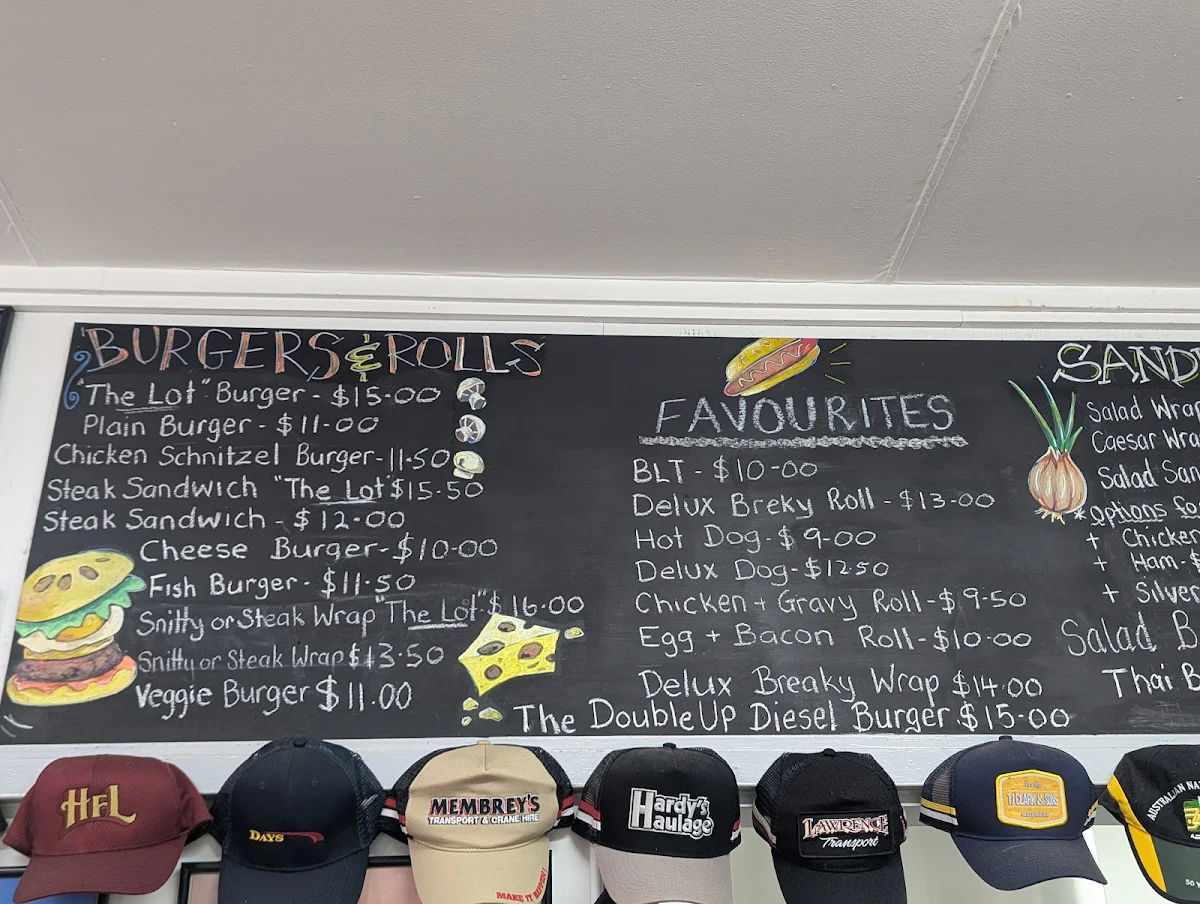 BURGERS & ROLLS
"The Lot" Burger - $15-00
Plain Burger - $11-00
Chicken Schnitzel Burger - 11.50
Steak Sandwich "The Lot" $15.50
Steak Sandwich - $12-00
Cheese Burger - $10-00
Fish Burger - $11.50
Snitty or Steak Wrap "The Lot" $16.00
Snitty or Steak Wrap $13.50
Veggie Burger $11.00
FAVOURITES
BLT - $10-00
Delux Breky Roll - $13-00
Hot Dog - $9-00
Delux Dog - $1250
Chicken + Gravy Roll - $9.50
Egg + Bacon Roll - $10-00
Delux Breaky Wrap $14.00
The Double Up Diesel Burger $15-00
SAND
Salad Wra
Caesar Wra
Salad San
*options
+ Chicken
+ Ham - $
+ Silvers
Salad B
Thai B
HFL
DAYS
MEMBREY'S
TRANSPORT & CRANE HIRE
MAKE IT HAPPEN!
Hardy's
Haulage
LAWRENCE
Transport
CLARK & SONS
AUSTRALIAN NA
50